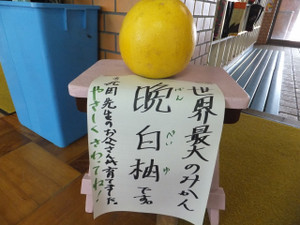 世界最大のみかん
晩白柚です。
ばん
ぺい
ゆ
先生のお父さんが育てました。
やさしくさわってね!